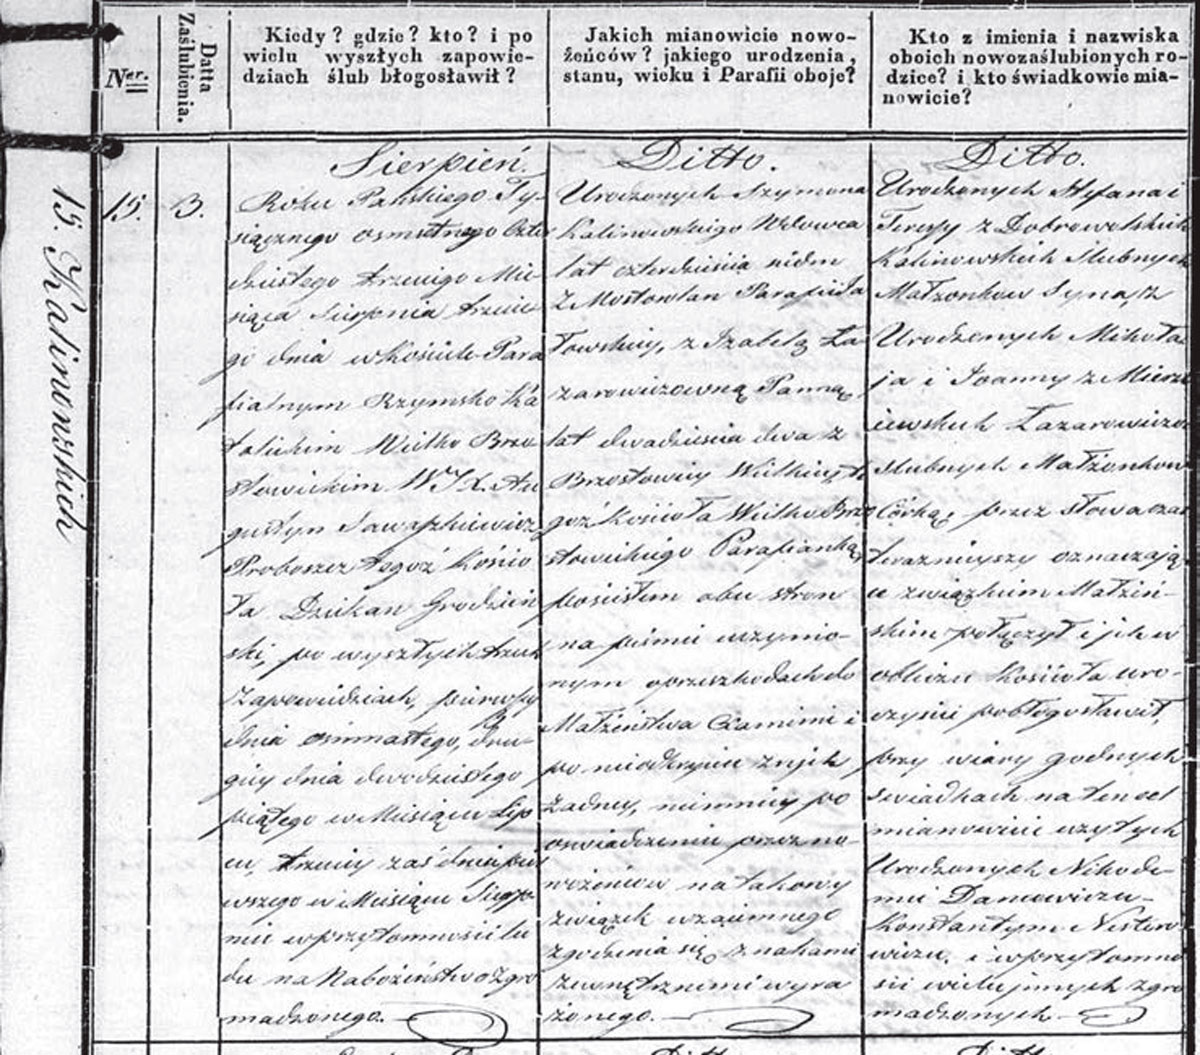 Ner.
Datta
Zaślubienia.
Kiedy? gdzie? kto? i po
wielu wyszłych zapowie-
dziach ślub błogosławił?
Jakich mianowicie nowo-
żeńców? jakiego urodzenia,
stanu, wieku i Parafii oboje?
Kto z imienia i nazwiska
oboich nowozaślubionych ro-
dzice? i kto świadkowie mia-
nowicie?
15. Kalinowskich
15.
3.
Sierpień.
Roku Pańskiego Ty-
siącznego osmsetnego Czter
dziestego trzeciego Mie-
siąca Sierpnia trzecie-
go dnia w Kościele Para
fialnym Rzymsko Ka
tolickim Wielko Brzo
stowickim WJX. Au
gustyn Sawaszkiewicz
Proboszcz tegoż Kościo
ła Dziekan Grodzień
ski, po wyszłych trzech
Zapowiedziach, pierwszy
dnia osmnastego, dru-
giey dnia dwódziestego
piątego w Miesiącu Lip
cu, trzeciey zaś dnia pier
wszego w Miesiącu Sierp-
niu w przytomności lu
du na Nabożeństwo zgro
madzonego.
Ditto.
Urodzonych Szymona
Kalinowskiego Wdowca
lat czterdzieścia siedm
z Mostowlan Parafii Ja
łowskiey, z Izabelą Ła
zarowiczowną Panną
lat dwadzieścia dwa z
Brzostowicy Wielkiey te
goż Kościoła Wielko Brzo
stowickiego Parafianką,
po ścisłem obu stron
na piśmie uczynio-
nym o przeszkodach do
Małżeństwa Examinie i
po nieodkryciu z njch
żadney, niemniey po
oswiadczeniu przez no-
wożeńców na takowy
związek wzaiemnego
zgodzenia się znakami
zewnętrznemi wyra
żonego.
Ditto.
Urodzonych Stefana i
Teresy z Dobrowolskich
Kalinowskich Slubnych
Małżonkow Syna, z
Urodzonych Mikoła
ja i Joanny z Mierze
iewskich Łazarowiczow
slubnych Małżonkow
Córką, przez słowa czas
teraźnieyszy oznaczają
ce związkiem Małżeń-
skim połączył i jch w
obliczu Kościoła uro-
czyscie pobłogosławił,
przy wiary godnych
swiadkach na ten cel
mianowicie użytych
Urodzonych Nikode-
mie Daniewiczu-
Konstantym Nestero
wiczu, i w przytomno
sci wielu jnnych zgro
madzonych
Ditto
Ditto